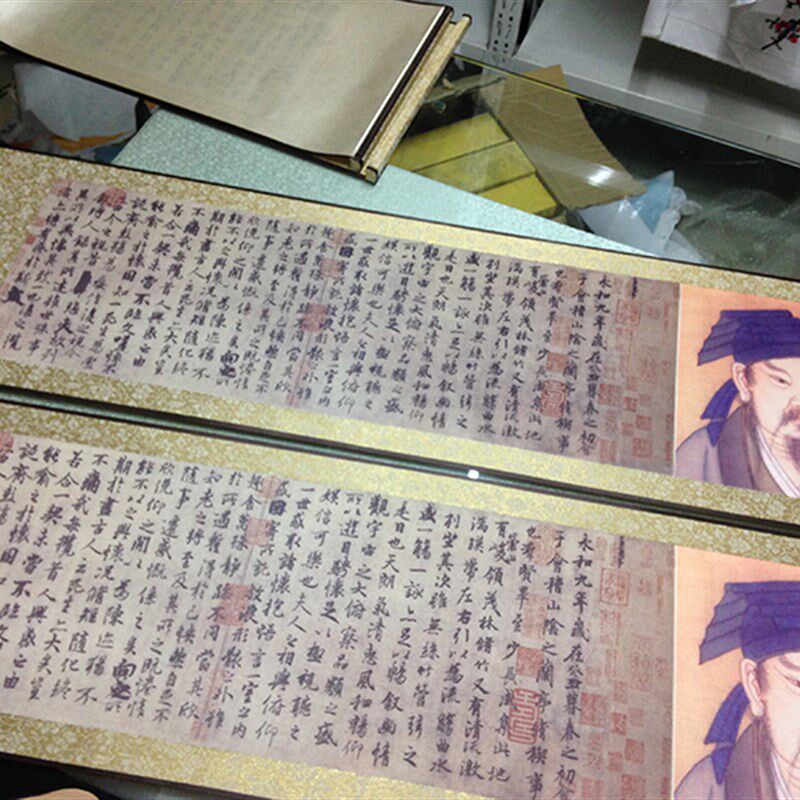 永和九年歲在癸丑暮春之初會
于會稽山陰之蘭亭脩稧事
也羣賢畢至少長咸集此地
有崇山峻領茂林脩竹又有清流激
湍暎帶左右引以為流觴曲水
列坐其次雖無絲竹管弦之
盛一觴一詠亦足以暢敘幽情
是日也天朗氣清惠風和暢仰
觀宇宙之大俯察品類之盛
所以遊目騁懷足以極視聽之
娛信可樂也夫人之相與俯仰
一世或取諸懷抱悟言一室之內
或因寄所託放浪形骸之外雖
趣舍萬殊靜躁不同當其欣
於所遇蹔得於己怏然自足不
知老之將至及其所之既惓情
隨事遷感慨係之矣向之所
欣俛仰之間以為陳迹猶不
能不以之興懷況脩短隨化終
期於盡古人云死生亦大矣豈
不痛哉每攬昔人興感之由
若合一契未嘗不臨文嗟悼不
能喻之於懷固知一死生為虛
誕齊彭殤為妄作後之視今
亦由今之視昔悲夫故列
敘時人錄其所述雖世殊事
異所以興懷其致一也後之攬
永和九年歲在癸丑暮春之初會
于會稽山陰之蘭亭脩稧事
也羣賢畢至少長咸集此地
有崇山峻領茂林脩竹又有清流激
湍暎帶左右引以為流觴曲水
列坐其次雖無絲竹管弦之
盛一觴一詠亦足以暢敘幽情
是日也天朗氣清惠風和暢仰
觀宇宙之大俯察品類之盛
所以遊目騁懷足以極視聽之
娛信可樂也夫人之相與俯仰
一世或取諸懷抱悟言一室之內
或因寄所託放浪形骸之外雖
趣舍萬殊靜躁不同當其欣
於所遇蹔得於己怏然自足不
知老之將至及其所之既惓情
隨事遷感慨係之矣向之所
欣俛仰之間以為陳迹猶不
能不以之興懷況脩短隨化終
期於盡古人云死生亦大矣豈
不痛哉每攬昔人興感之由
若合一契未嘗不臨文
能喻之於懷固
誕齊彭殤